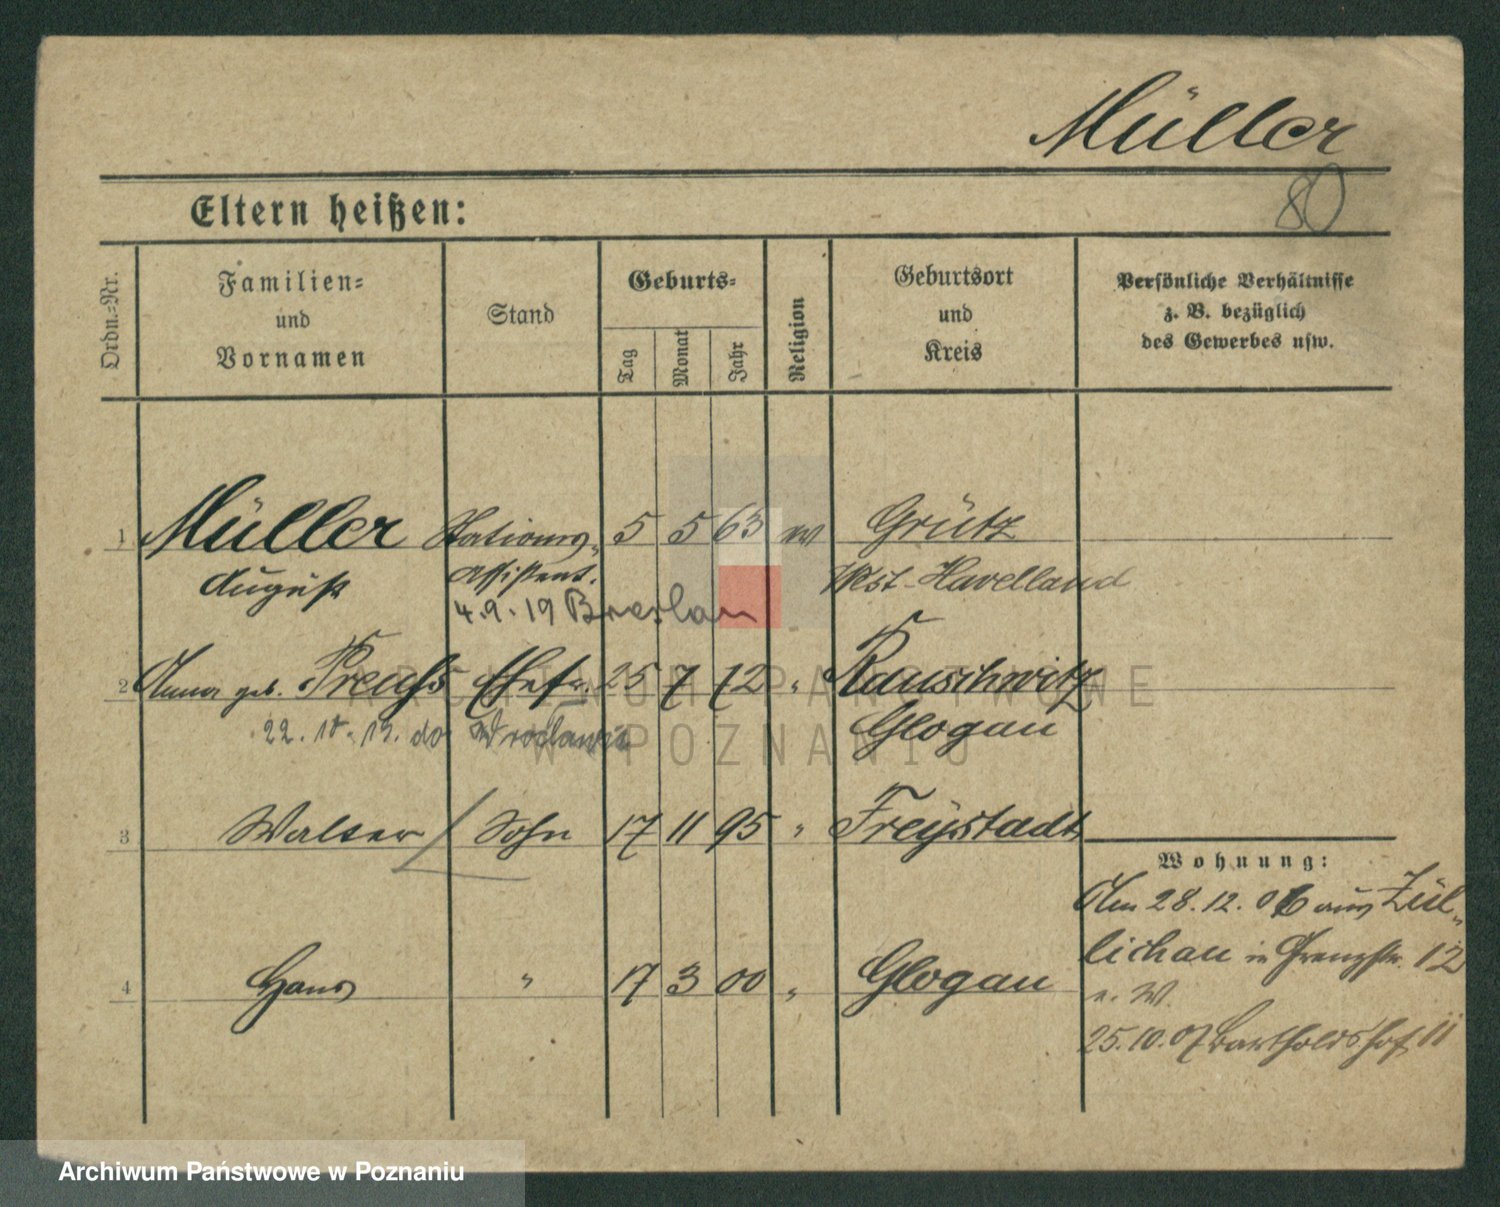 Müller
80
Eltern heißen:
Ordn.-Nr.
Familien-
und
Vornamen
Stand
Geburts-
Tag
Monat
Jahr
Religion
Geburtsort
und
Kreis
Persönliche Verhältnisse
z. B. bezüglich
des Gewerbes usw.
1 Müller Stations- 5 5 63 Grütz
August Assistent. West-Havelland
4.9.19 Breslau
2 Anna geb. Preuß Ehefr. 25 7 72 " Rauschwitz
Glogau
22.10.19. do Wrocławia
3 Walter Sohn 17 11 95 " Freystadt
4 Hans " 17 3 00 " Glogau
Wohnung:
Am 28.12.06 aus Zül-
lichau in 12
e. W.
25.10.07 Bartholdshof 11
ARCHIWUM PAŃSTWOWE
W POZNANIU
Archiwum Państwowe w Poznaniu